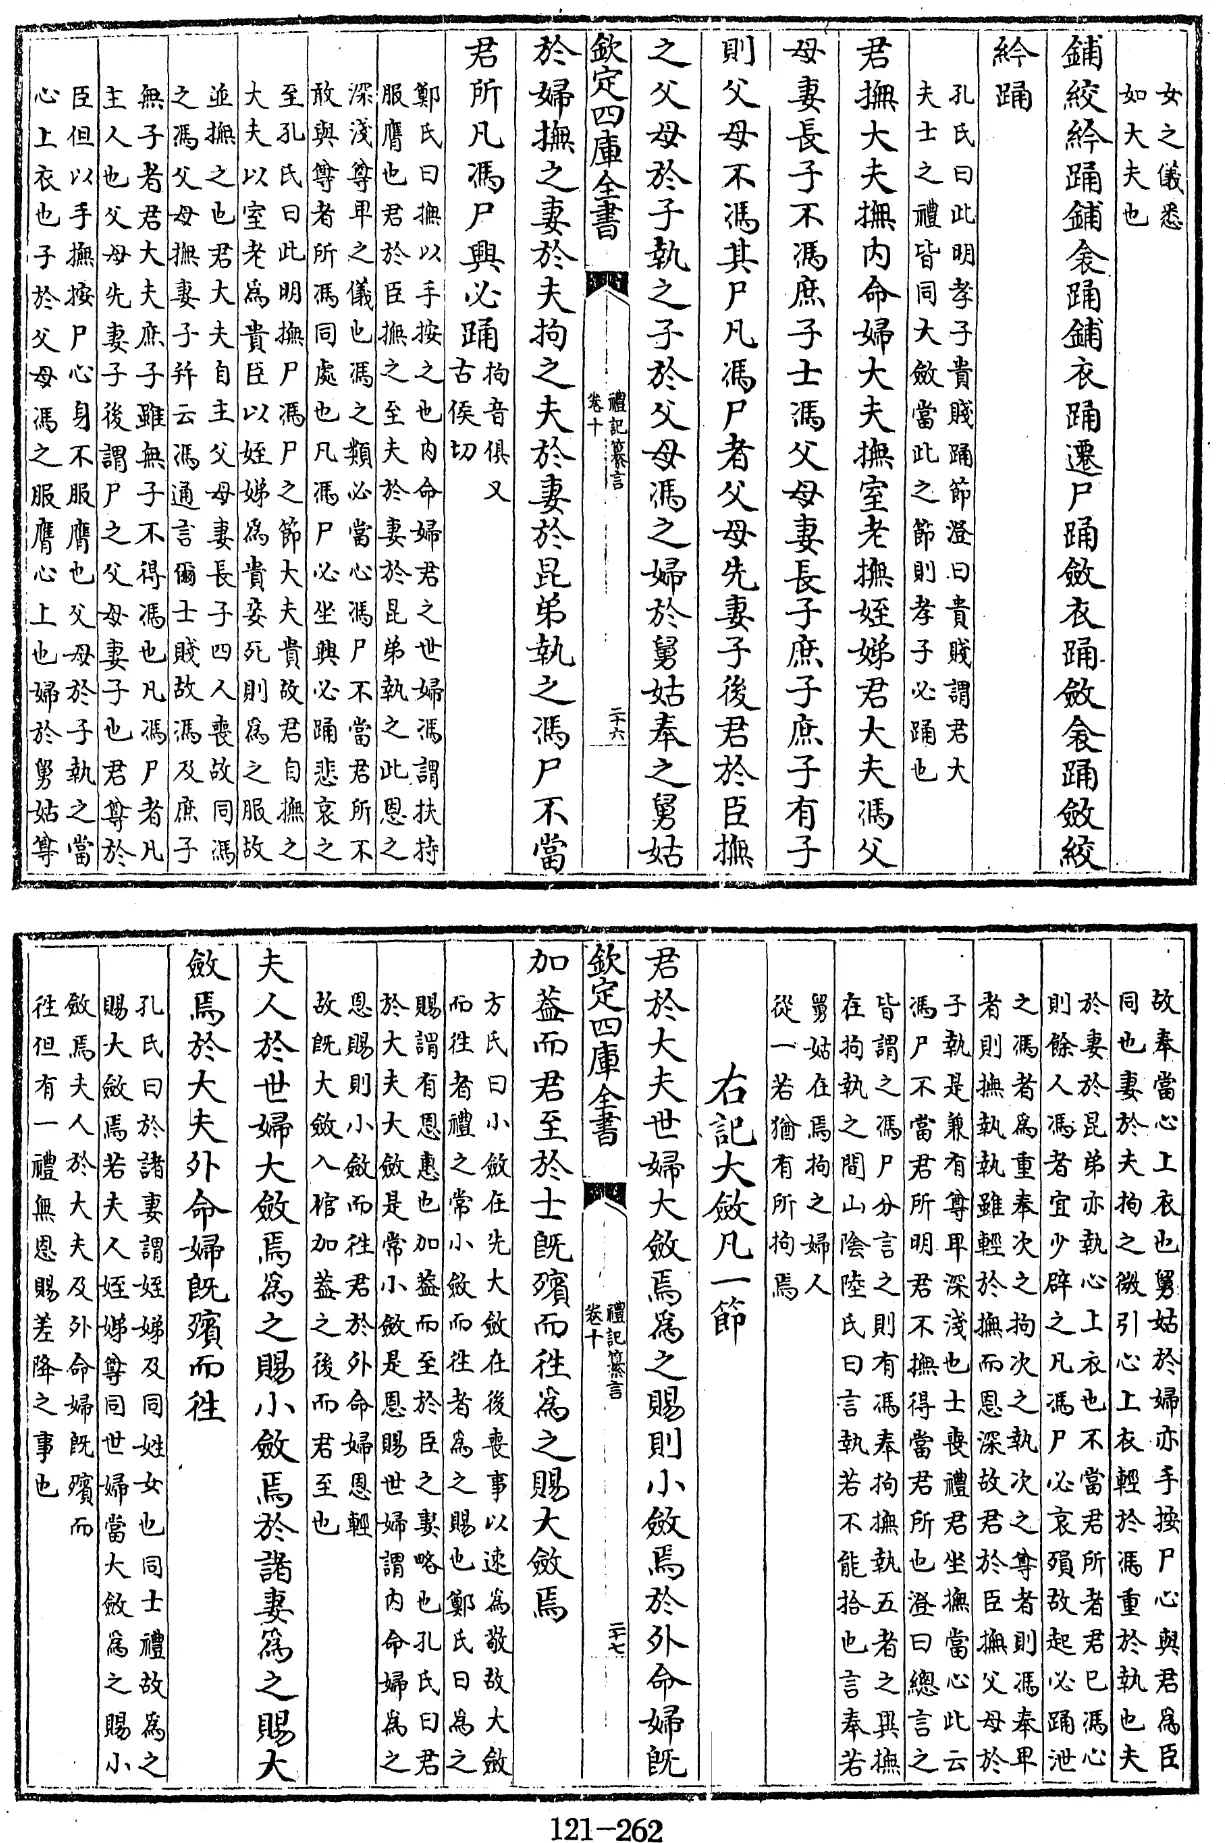 女之儀悉
如大夫也
鋪絞紟踊鋪衾踊鋪衣踊遷尸踊斂衣踊斂衾踊斂絞
紟踊
孔氏曰此明孝子貴賤踊節澄曰貴賤謂君大
夫士之禮皆同大斂當此之節則孝子必踊也
君撫大夫撫内命婦大夫撫室老撫姪娣君大夫馮父
母妻長子不馮庶子士馮父母妻長子庶子庶子有子
則父母不馮其尸凡馮尸者父母先妻子後君於臣撫
之父母於子執之子於父母馮之婦於舅姑奉之舅姑
欽定四庫全書
禮記纂言
卷十
二十六
於婦撫之妻於夫拘之夫於妻於昆弟執之馮尸不當
君所凡馮尸興必踊
拘音俱又
古侯切
鄭氏曰撫以手按之也内命婦君之世婦馮謂扶持
服膺也君於臣撫之至夫於妻於昆弟執之此恩之
深淺尊卑之儀也馮之類必當心馮尸不當君所不
敢與尊者所馮同處也凡馮尸必坐興必踊悲哀之
至孔氏曰此明撫尸馮尸之節大夫貴故君自撫之
大夫以室老為貴臣以姪娣為貴妾死則為之服故
並撫之也君大夫自主父母妻長子四人喪故同馮
之馮父母撫妻子幷云馮通言爾士賤故馮及庶子
無子者君大夫庶子雖無子不得馮也凡馮尸者凡
主人也父母先妻子後謂尸之父母妻子也君尊於
臣但以手撫按尸心身不服膺也父母於子執之當
心上衣也子於父母馮之服膺心上也婦於舅姑尊
故奉當心上衣也舅姑於婦亦手按尸心與君為臣
同也妻於夫拘之微引心上衣輕於馮重於執也夫
於妻於昆弟亦執心上衣也不當君所者君已馮心
則餘人馮者宜少辟之凡馮尸必哀殞故起必踊泄
之馮者為重奉次之拘次之執次之尊者則馮奉卑
者則撫執執雖輕於撫而恩深故君於臣撫父母於
子執是兼有尊卑深淺也士喪禮君坐撫當心此云
馮尸不當君所明君不撫得當君所也澄曰總言之
皆謂之馮尸分言之則有馮奉拘撫執五者之異撫
在拘執之間山陰陸氏曰言執若不能拾也言奉若
舅姑在焉拘之婦人
從一若猶有所拘焉
右記大斂凡一節
君於大夫世婦大斂焉為之賜則小斂焉於外命婦既
欽定四庫全書
禮記纂言
卷十
二十七
加葢而君至於士既殯而徃為之賜大斂焉
方氏曰小斂在先大斂在後喪事以速為敬故大斂
而徃者禮之常小斂而徃者為之賜也鄭氏曰為之
賜謂有恩惠也加葢而至於臣之妻略也孔氏曰君
於大夫大斂是常小斂是恩賜世婦謂内命婦為之
恩賜則小斂而徃君於外命婦恩輕
故既大斂入棺加葢之後而君至也
夫人於世婦大斂焉為之賜小斂焉於諸妻為之賜大
斂焉於大夫外命婦既殯而徃
孔氏曰於諸妻謂姪娣及同姓女也同士禮故為之
賜大斂焉若夫人姪娣尊同世婦當大斂為之賜小
斂焉夫人於大夫及外命婦既殯而
徃但有一禮無恩賜差降之事也
121-262